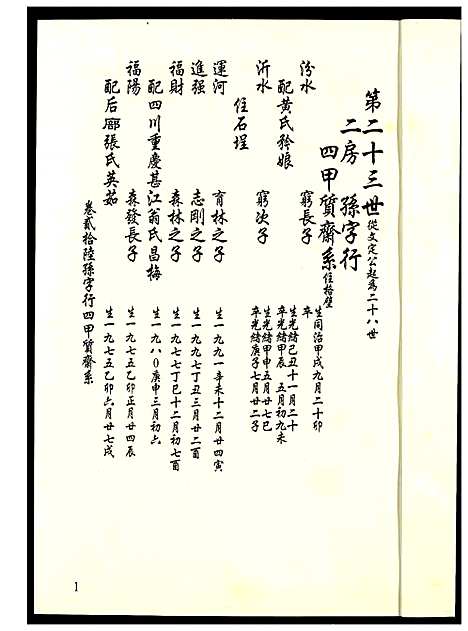 第二十三世 從文定公起為二十八世
二房 孫字行
四甲質齋系 住梧壁
汾水 窮長子 生同治甲戌九月二十卯 卒
配黄氏矜娘 生光緒己丑十一月二十 卒光緒甲辰五月初九未
沂水 窮次子 生光緒甲申五月廿七巳 卒光緒庚子七月廿二子
住石埕
運河 育林之子 生一九九一辛未十二月廿四寅
進强 志剛之子 生一九九七丁丑三月廿二酉
福財 森林之子 生一九七七丁巳十二月初七酉
配四川重慶綦江翁氏昌梅 生一九八〇庚申三月初六
福陽 森發長子 生一九七五乙卯正月廿四辰
配后廊張氏英茹 生一九七五乙卯六月廿七戌
卷貳拾陸孫字行四甲質齋系
1